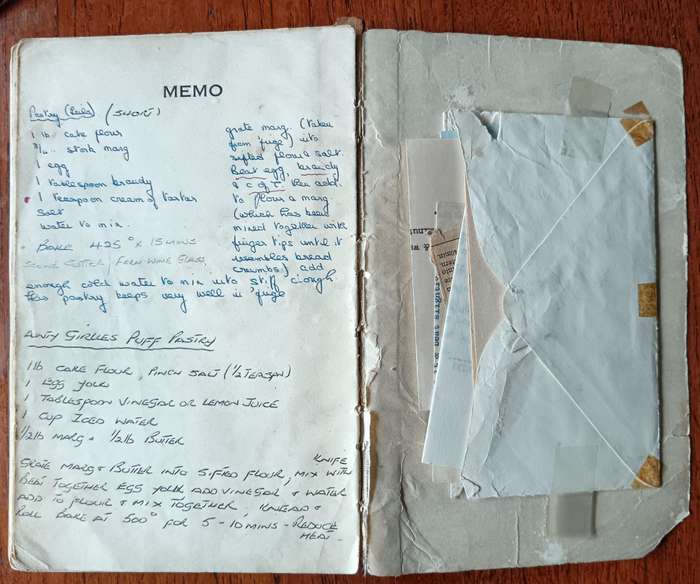 MEMO
Pastry (SHORT)
1 lb cake flour
3/4 stork marg
1 egg
1 tablespoon brandy
1 teaspoon cream of tartar
salt
water to mix.
BAKE 425° x 15 MINS
grate marg. (taken
from 'fuge) into
sifted flour & salt
Beat egg, brandy
& C of T. then add
to flour & marg
(which has been
mixed together with
finger tips until it
resembles bread
crumbs) add
enough cold water to mix into stiff dough
This pastry keeps very well in 'fuge
PUFF PASTRY
1 lb CAKE FLOUR, PINCH SALT (1/2 TEASPN)
1 EGG YOLK
1 TABLESPOON VINEGAR OR LEMON JUICE
1 CUP ICED WATER
1/2 lb MARG & 1/2 lb BUTTER
GRATE MARG & BUTTER INTO SIFTED FLOUR, MIX WITH KNIFE
BEAT TOGETHER EGG YOLK ADD VINEGAR & WATER
ADD TO FLOUR & MIX TOGETHER, KNEAD &
ROLL BAKE AT 500° FOR 5 - 10 MINS - REDUCE
HEAT -